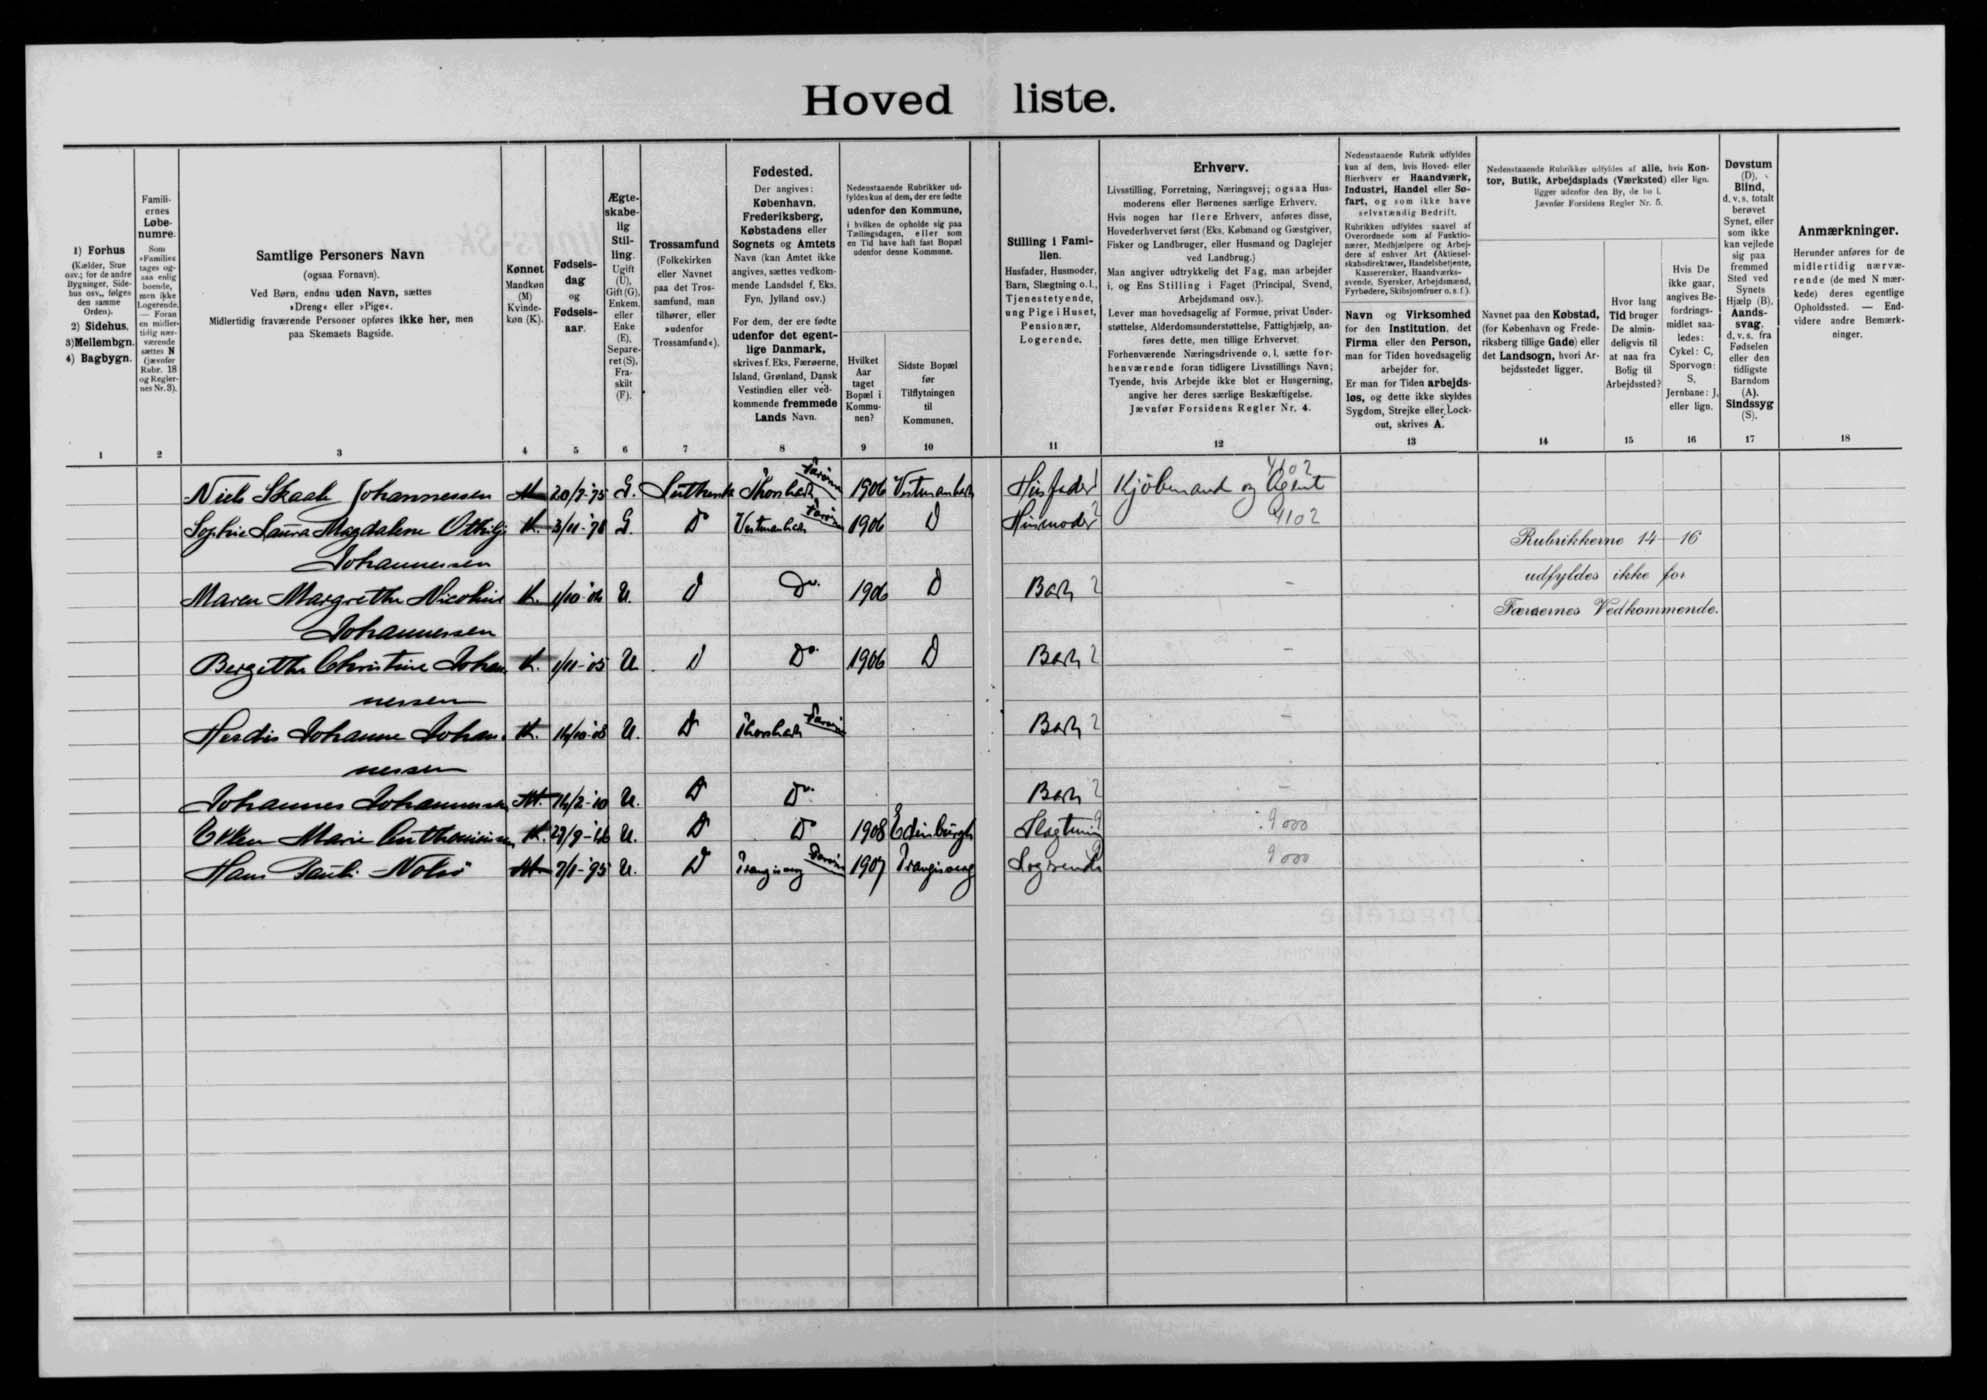 Hoved liste.
1) Forhus
(Kælder, Stue
osv.; for de andre
Bygninger, Side-
hus osv., følges
den samme
Orden).
2) Sidehus.
3) Mellembgn.
4) Bagbygn.
1
Famili-
ernes
Løbe-
numre.
Som
»Familie«
tages og-
saa enlig
boende,
men ikke
Logerende.
— Foran
en midler-
tidig nær-
værende
sættes N
(jævnfør
Rubr. 18
og Regler-
nes Nr. 3).
2
Samtlige Personers Navn
(ogsaa Fornavn).
Ved Børn, endnu uden Navn, sættes
»Dreng« eller »Pige«.
Midlertidig fraværende Personer opføres ikke her, men
paa Skemaets Bagside.
3
Kønnet
Mandkøn
(M)
Kvinde-
køn (K).
4
Fødsels-
dag
og
Fødsels-
aar.
5
Ægte-
skabe-
lig
Stil-
ling.
Ugift
(U),
Gift (G),
Enkem.
eller
Enke
(E),
Separe-
ret (S),
Fra-
skilt
(F).
6
Trossamfund
(Folkekirken
eller Navnet
paa det Tros-
samfund, man
tilhører, eller
»udenfor
Trossamfund«).
7
Fødested.
Der angives:
København,
Frederiksberg,
Købstadens eller
Sognets og Amtets
Navn (kan Amtet ikke
angives, sættes vedkom-
mende Landsdel f. Eks.
Fyn, Jylland osv.)
For dem, der ere fødte
udenfor det egent-
lige Danmark,
skrives f. Eks. Færøerne,
Island, Grønland, Dansk
Vestindien eller ved-
kommende fremmede
Lands Navn.
8
Nedenstaaende Rubrikker ud-
fyldes kun af dem, der ere fødte
udenfor den Kommune,
i hvilken de opholde sig paa
Tællingsdagen, eller som
en Tid have haft fast Bopæl
udenfor denne Kommune.
Hvilket
Aar
taget
Bopæl i
Kommu-
nen?
9
Sidste Bopæl
før
Tilflytningen
til
Kommunen.
10
Stilling i Fami-
lien.
Husfader, Husmoder,
Barn, Slægtning o. l.,
Tjenestetyende,
ung Pige i Huset,
Pensionær,
Logerende.
11
Erhverv.
Livsstilling, Forretning, Næringsvej; ogsaa Hus-
moderens eller Børnenes særlige Erhverv.
Hvis nogen har flere Erhverv, anføres disse,
Hovederhvervet først (Eks. Købmand og Gæstgiver,
Fisker og Landbruger, eller Husmand og Daglejer
ved Landbrug.)
Man angiver udtrykkelig det Fag, man arbejder
i, og Ens Stilling i Faget (Principal, Svend,
Arbejdsmand osv.).
Lever man hovedsagelig af Formue, privat Under-
støttelse, Alderdomsunderstøttelse, Fattighjælp, an-
føres dette, men tillige Erhvervet.
Forhenværende Næringsdrivende o. l. sætte for-
henværende foran tidligere Livsstillings Navn;
Tyende, hvis Arbejde ikke blot er Husgerning,
angive her deres særlige Beskæftigelse.
Jævnfør Forsidens Regler Nr. 4.
12
Nedenstaaende Rubrik udfyldes
kun af dem, hvis Hoved- eller
Bierhverv er Haandværk,
Industri, Handel eller Sø-
fart, og som ikke have
selvstændig Bedrift.
Rubrikken udfyldes saavel af
Overordnede som af Funktio-
nærer, Medhjælpere og Arbej-
dere af enhver Art (Aktiesel-
skabsdirektører, Handelsbetjente,
Kasserersker, Haandværks-
svende, Syersker, Arbejdsmænd,
Fyrbødere, Skibsjomfruer o. s. f.).
Navn og Virksomhed
for den Institution, det
Firma eller den Person,
man for Tiden hovedsagelig
arbejder for.
Er man for Tiden arbejds-
løs, og dette ikke skyldes
Sygdom, Strejke eller Lock-
out, skrives A.
13
Nedenstaaende Rubrikker udfyldes af alle, hvis Kon-
tor, Butik, Arbejdsplads (Værksted) eller lign.
ligger udenfor den By, de bo i.
Jævnfør Forsidens Regler Nr. 5.
Navnet paa den Købstad,
(for København og Frede-
riksberg tillige Gade) eller
det Landsogn, hvori Ar-
bejdsstedet ligger.
14
Hvor lang
Tid bruger
De almin-
deligvis til
at naa fra
Bolig til
Arbejdssted?
15
Hvis De
ikke gaar,
angives Be-
fordrings-
midlet saa-
ledes:
Cykel: C,
Sporvogn:
S,
Jernbane: J,
eller lign.
16
Døvstum
(D),
Blind,
d. v. s. totalt
berøvet
Synet, eller
som ikke
kan vejlede
sig paa
fremmed
Sted ved
Synets
Hjælp (B).
Aands-
svag,
d. v. s. fra
Fødselen
eller den
tidligste
Barndom
(A).
Sindssyg
(S).
17
Anmærkninger.
Herunder anføres for de
midlertidig nærvæ-
rende (de med N mær-
kede) deres egentlige
Opholdssted. — End-
videre andre Bemærk-
ninger.
18
Niels Skaale Johannessen M 20/7-75 G. Luthersk Thorshavn Færøerne 1906 Vestmanhavn Husfader 1 Kjøbmand og Agent 4102
Sophie Laura Magdalene Othilje K. 3/11-78 G. Do Vestmanhavn Færø 1906 Do Husmoder 2 4102
Johannessen
Maren Margrethe Nicoline K. 1/10-04 U. Do Do. 1906 Do Barn 2 -
Johannessen
Bergithe Christine Johan- K. 1/11-05 U Do Do. 1906 Do Barn 2 -
nessen
Herdis Johanne Johan- K. 14/10-08 U. Do Thorshavn Færø Barn 2 -
nessen
Johannes Johannessen M. 14/2-10 U. Do Do. Barn 2 -
Ellen Marie K. U. Do Do 1908 Edinburgh Slægtning 9 000
Hans Pauli Nolsø M 7/1-95 U. Do Færø 1907 9 000
Rubrikkerne 14-16
udfyldes ikke for
Færøernes Vedkommende.